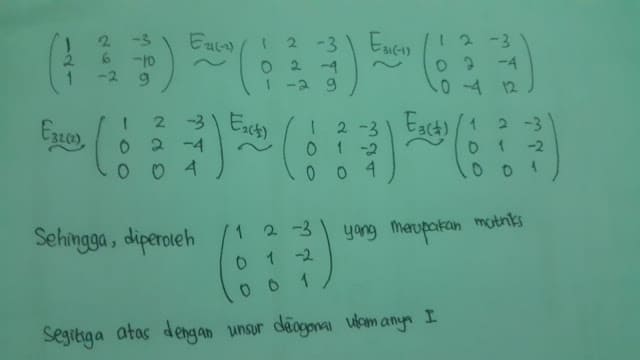 ( 1 2 -3 ; 2 6 -10 ; 1 -2 9 ) E21(-2) ~ ( 1 2 -3 ; 0 2 -4 ; 1 -2 9 ) E31(-1) ~ ( 1 2 -3 ; 0 2 -4 ; 0 -4 12 )
E32(2) ~ ( 1 2 -3 ; 0 2 -4 ; 0 0 4 ) E2(½) ~ ( 1 2 -3 ; 0 1 -2 ; 0 0 4 ) E3(¼) ~ ( 1 2 -3 ; 0 1 -2 ; 0 0 1 )
Sehingga, diperoleh ( 1 2 -3 ; 0 1 -2 ; 0 0 1 ) yang merupakan matriks
Segitiga atas dengan unsur diagonal utamanya I